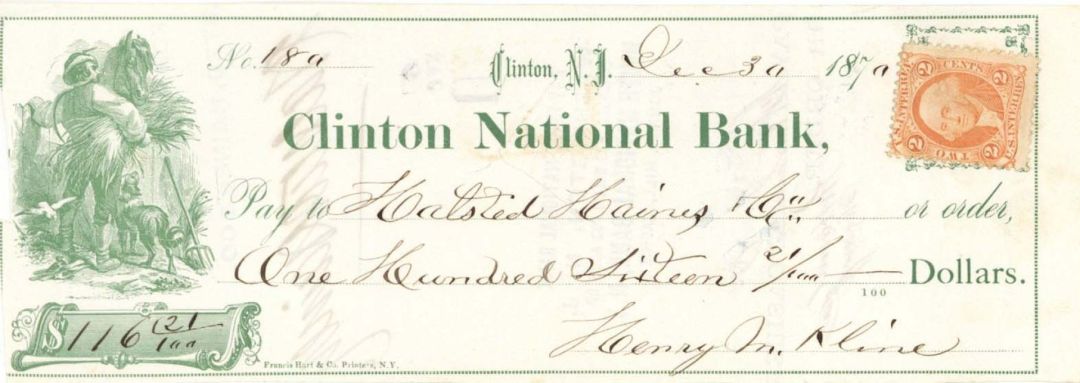 No. 180 Clinton, N. J. Dec 30 1870
Clinton National Bank,
Pay to Halsted Haines & Co. or order,
One Hundred Sixteen 21/100 Dollars.
100
$116 21/100
Henry M. Kline
Francis Hart & Co. Printers, N.Y.
2 CENTS 2
U.S. INTER. REV.
U.S. INTER. REV.
2 TWO 2